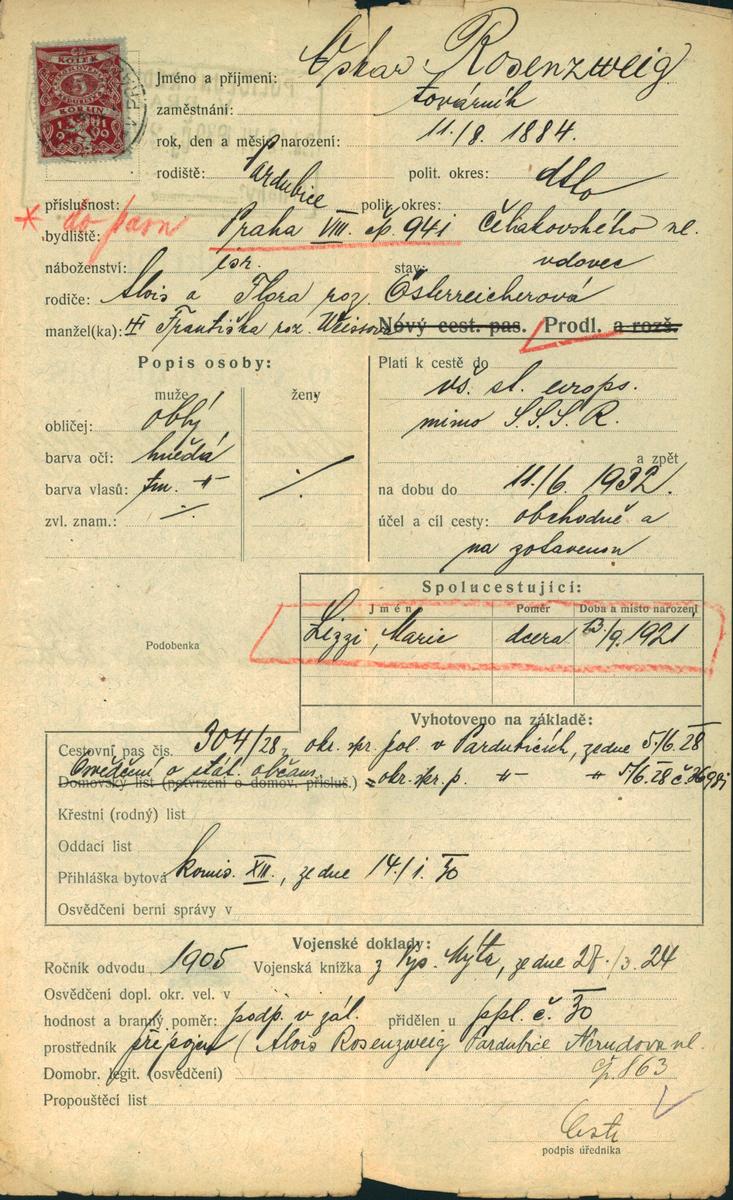 KOLEK
5
KORUN
1919
Jméno a příjmení: Oskar Rosenzweig
zaměstnání: továrník
rok, den a měsíc narození: 11./8. 1884.
rodiště: Pardubice polit. okres: dtto
příslušnost: polit. okres:
bydliště: Praha VIII. čp. 941 Čelakovského ul.
náboženství: isr. stav: vdovec
rodiče: Alois a Flora roz. Österreicherová
manžel(ka): Františka roz. Weissová Nový cest. pas. Prodl. a rozš.
Popis osoby: Platí k cestě do
muže ženy vš. st. evrops.
obličej: oblý mimo S.S.S.R.
barva očí: hnědá a zpět
barva vlasů: tm. -"- na dobu do 11./6. 1932.
zvl. znam.: účel a cíl cesty: obchodně a
na zotavenou
Spolucestující:
Jméno Poměr Doba a místo narození
Podobenka Lizzi, Marie dcera 13/9. 1921
Vyhotoveno na základě:
Cestovní pas čís. 304/28, okr. spr. pol. v Pardubicích, ze dne 5/6. 28
Osvědčení o stát. občan.
Domovský list (potvrzení o domov. přísluš.) = okr. spr. p. -"- -"- 5/6. 28
Křestní (rodný) list
Oddací list
Přihláška bytová komis. XII., ze dne 14/1. 30
Osvědčení berní správy v
Vojenské doklady:
Ročník odvodu 1905 Vojenská knížka z Vys. Mýta, ze dne 27./3. 24
Osvědčení dopl. okr. vel. v
hodnost a branný poměr: podp. v zál. přidělen u ppl. č. 30
prostředník připojen (Alois Rosenzweig Pardubice Nerudova ul.
Domobr. legit. (osvědčení) čp. 863
Propouštěcí list
podpis úředníka